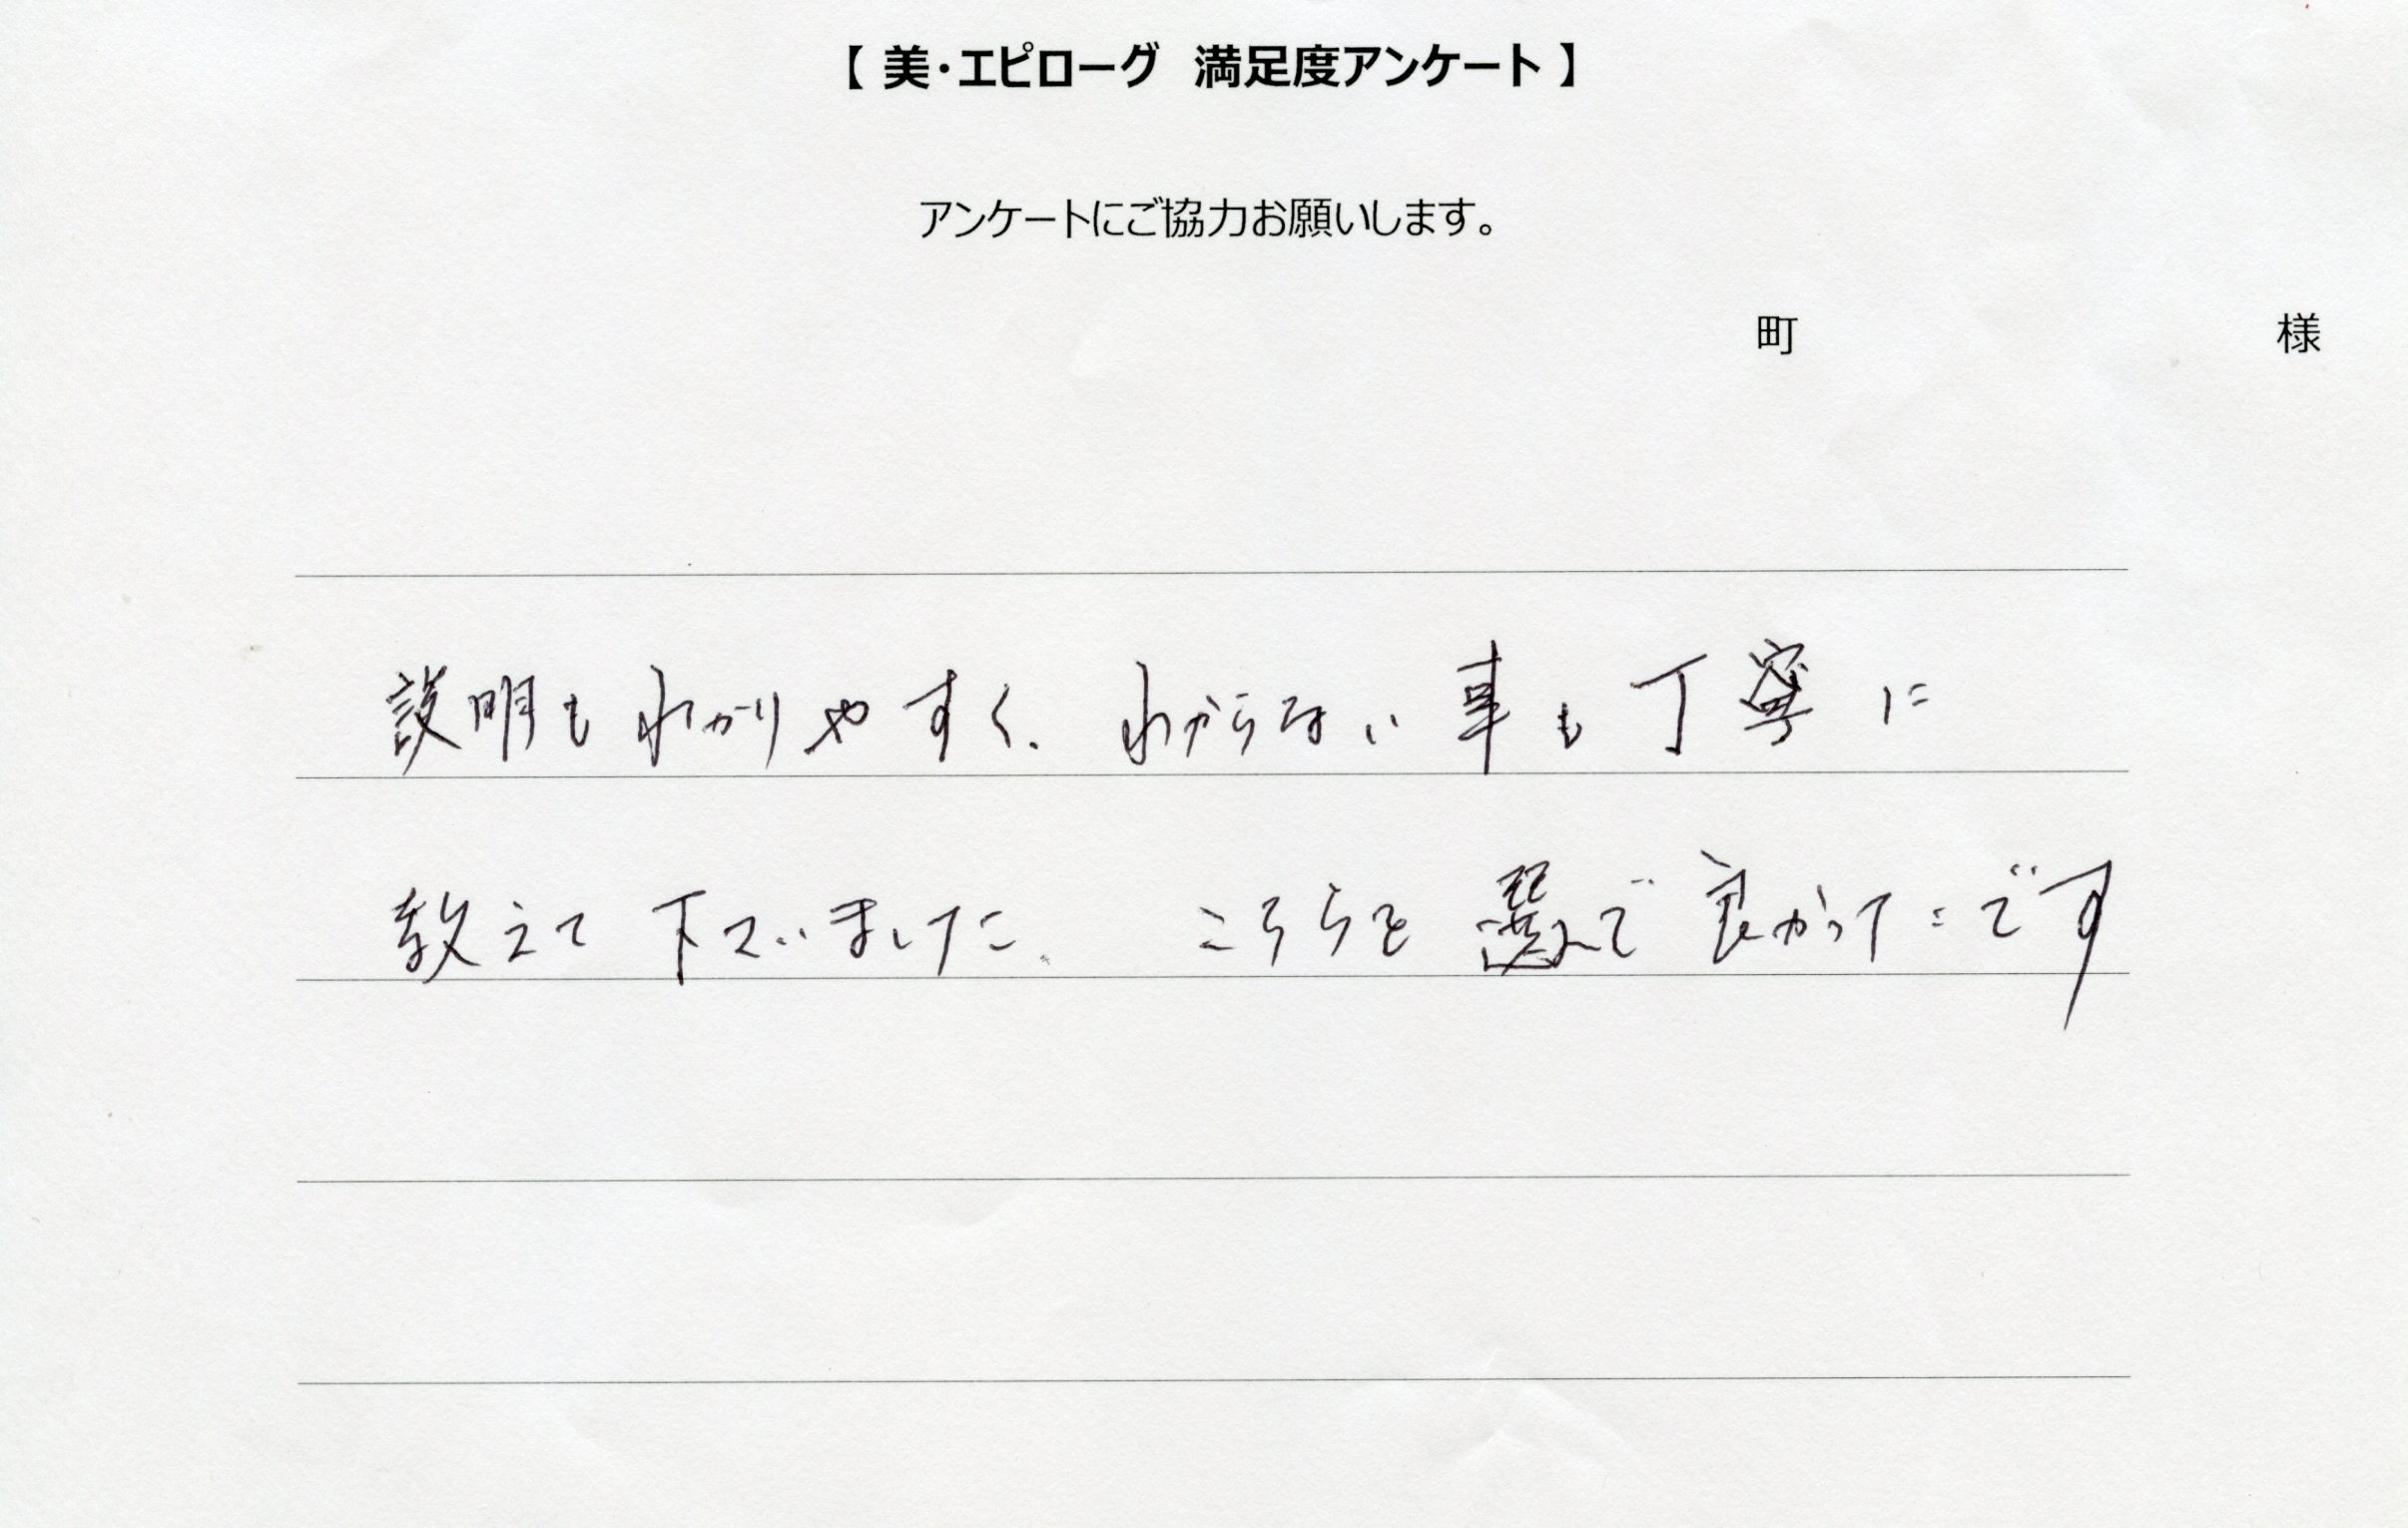 【 美・エピローグ 満足度アンケート 】
アンケートにご協力お願いします。
町 様
説明もわかりやすく、わからない事も丁寧に
教えて下さいました。 こちらを選んで良かったです